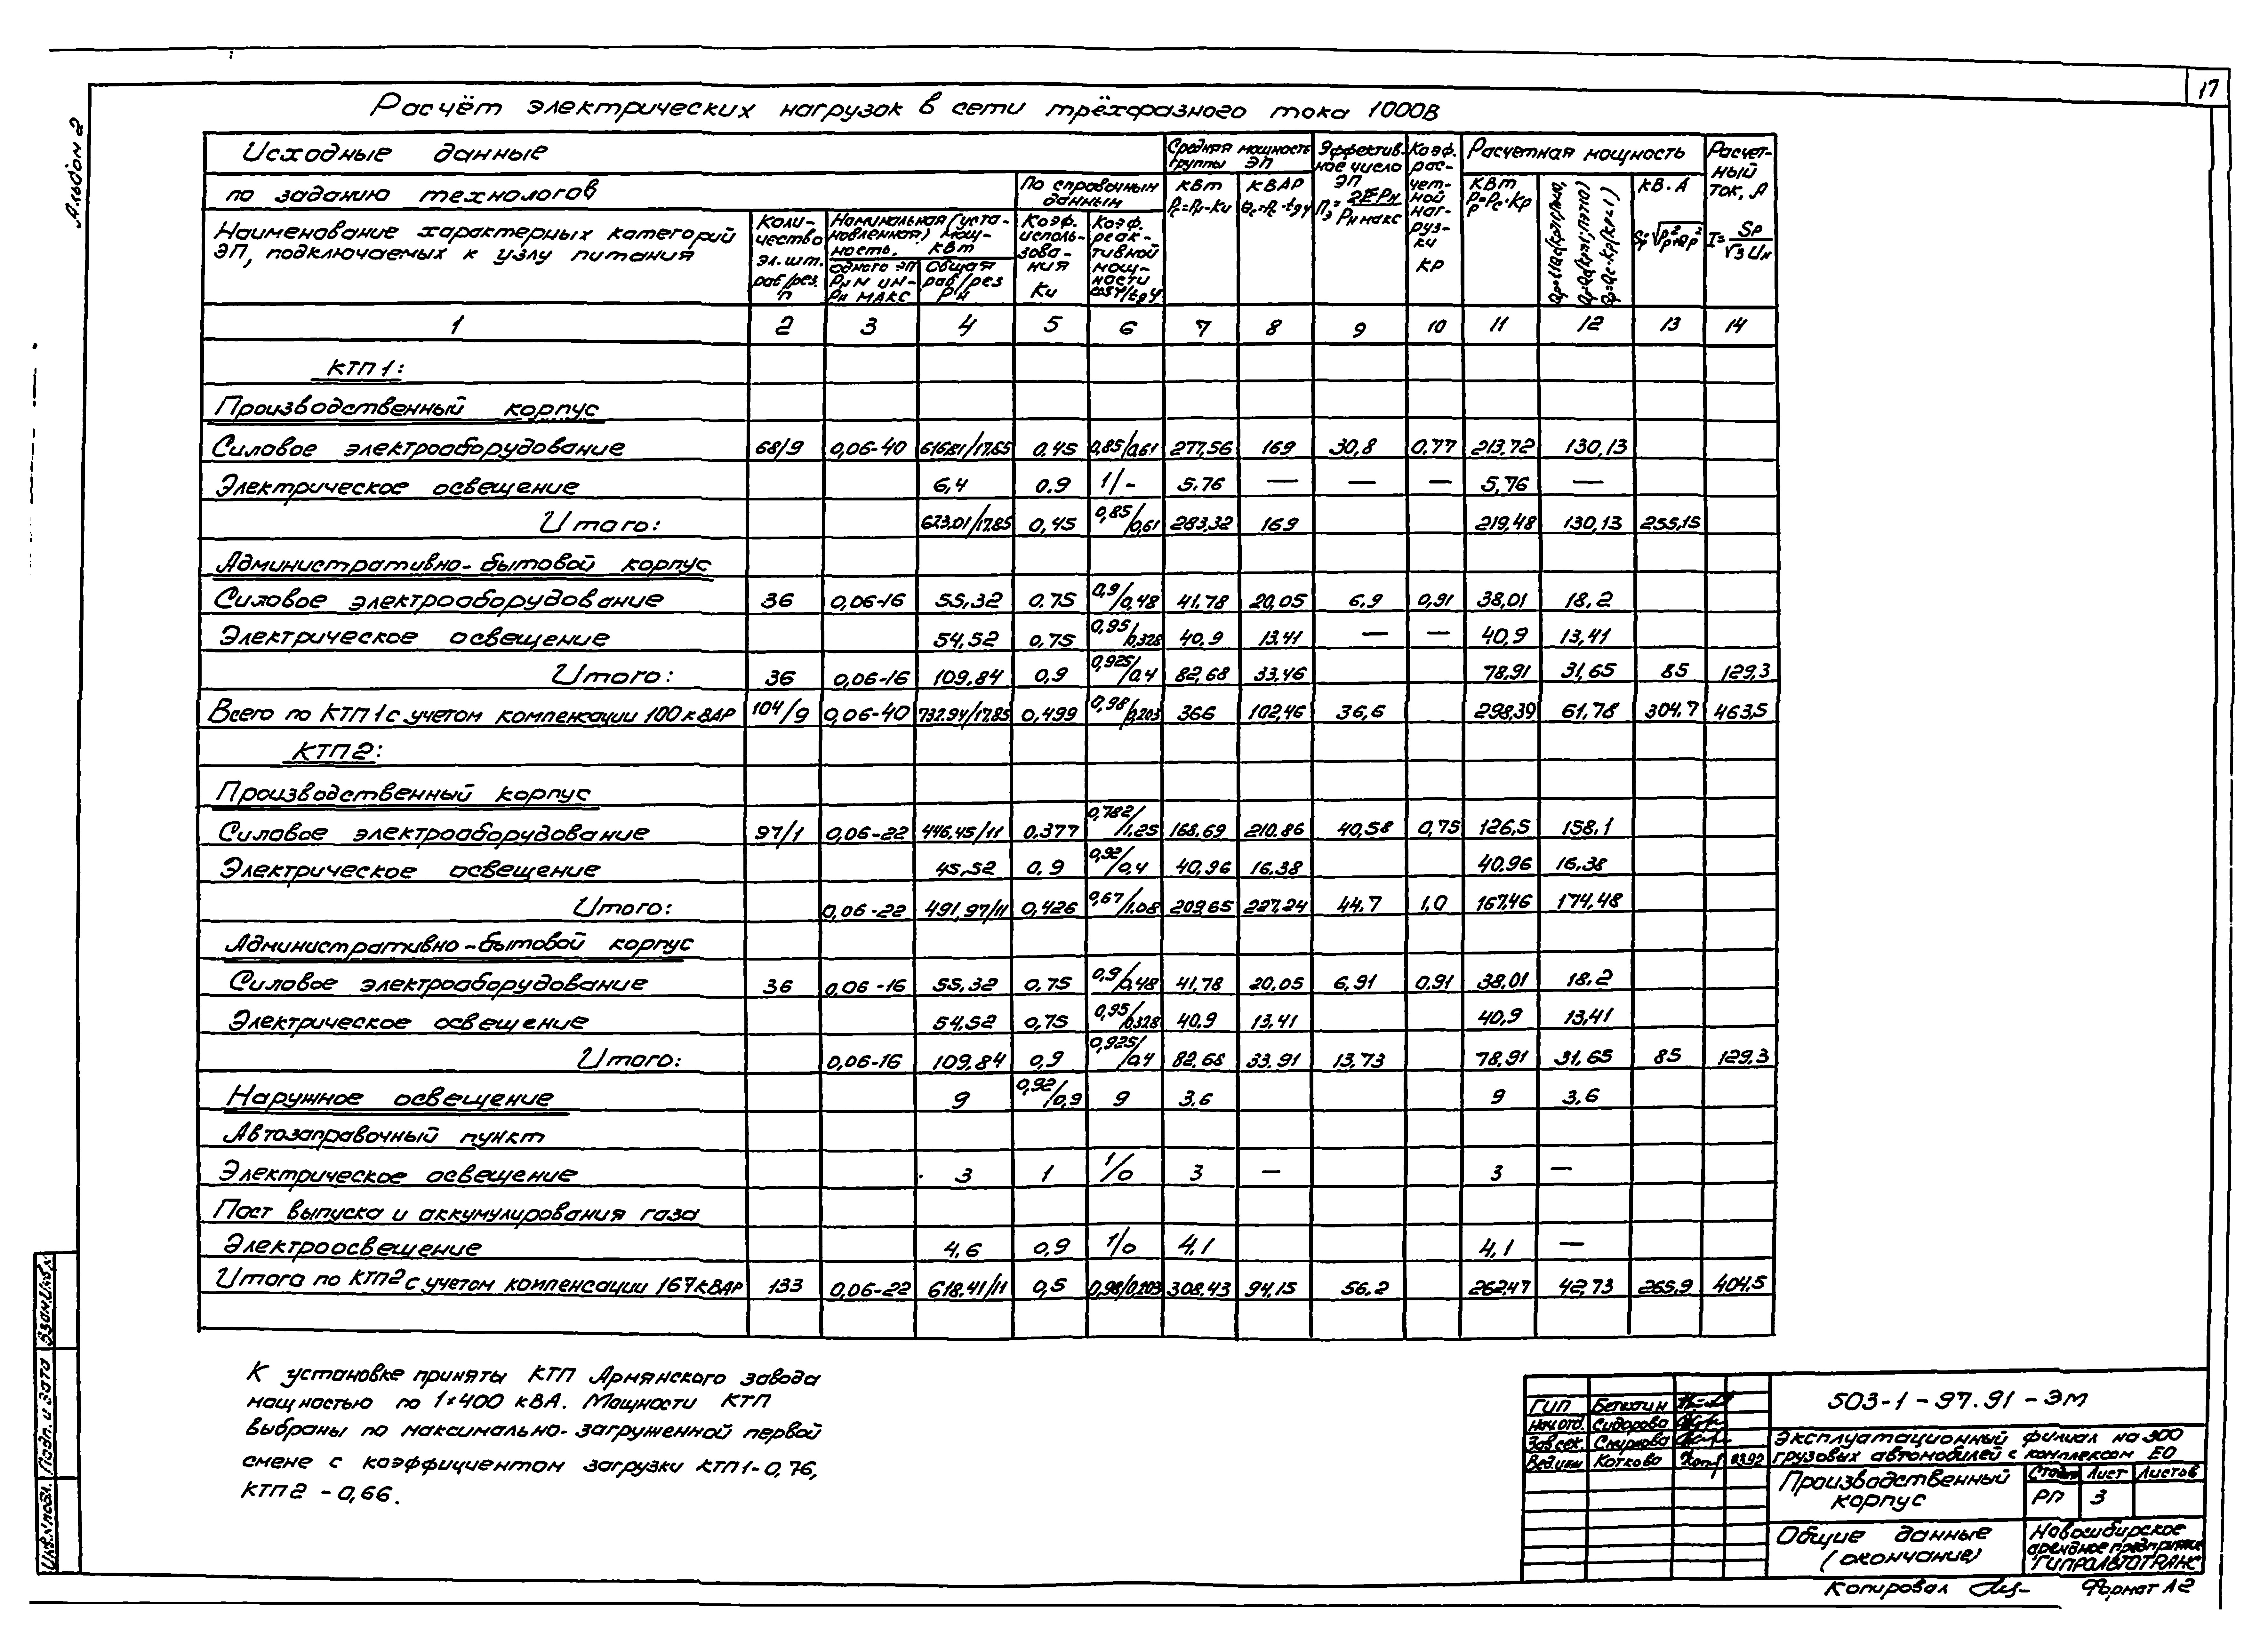 17
Альбом 2
Расчёт электрических нагрузок в сети трёхфазного тока 1000В
Исходные данные
Средняя мощность группы ЭП
Эффективное число ЭП nэ = 2ΣPн / Pн макс
Коэф. расчетной нагрузки Кр
Расчетная мощность
Расчетный ток, А I = Sр / √3 Uн
по заданию технологов
По справочным данным
кВт Pс=Pн·Ки
кВАР Qс=Pс·tgφ
кВт Pр=Pс·Кр
кВ.А Sр=√Pр²+Qр²
Наименование характерных категорий ЭП, подключаемых к узлу питания
Количество эл. шт. раб/рез. n
Номинальная (установленная) мощность, кВт
одного ЭП Pн мин- Pн макс
Общая раб/рез Pн
Коэф. использования Ки
Коэф. реактивной мощности cosφ/tgφ
1 2 3 4 5 6 7 8 9 10 11 12 13 14
КТП1:
Производственный корпус
Силовое электрооборудование 68/9 0,06-40 616,61/17,85 0,45 0,85/0,61 277,56 169 30,8 0,77 213,72 130,13
Электрическое освещение 6,4 0.9 1/- 5.76 — — — 5,76 —
Итого: 623,01/17,85 0,45 0,85/0,61 283,32 169 219,48 130,13 255,15
Административно-бытовой корпус
Силовое электрооборудование 36 0,06-16 55,32 0.75 0,9/0,48 41.78 20,05 6.9 0,91 38,01 18.2
Электрическое освещение 54,52 0,75 0,95/0,328 40.9 13,41 — — 40,9 13,41
Итого: 36 0,06-16 109,84 0,9 0,925/0,4 82,68 33,46 78,91 31,65 85 129,3
Всего по КТП1 с учетом компенсации 100 кВАР 104/9 0,06-40 732.94/17,85 0,499 0,98/0,203 366 102,46 36,6 298,39 61,78 304.7 463,5
КТП2:
Производственный корпус
Силовое электрооборудование 97/1 0,06-22 446.45/11 0.377 0,782/1,25 168.69 210.86 40,58 0,75 126,5 158.1
Электрическое освещение 45,52 0.9 0,92/0,4 40,96 16,38 40.96 16,38
Итого: 0,06-22 491,97/11 0,426 0,67/1.08 209,65 227,24 44.7 1,0 167,46 174,48
Административно-бытовой корпус
Силовое электрооборудование 36 0,06-16 55,32 0,75 0,9/0,48 41,78 20,05 6,91 0,91 38,01 18.2
Электрическое освещение 54,52 0,75 0,95/0,328 40,9 13,41 40,9 13,41
Итого: 0,06-16 109,84 0,9 0,925/0,4 82,68 33.91 13,73 78,91 31.65 85 129.3
Наружное освещение 9 0,92/0,9 9 3.6 9 3,6
Автозаправочный пункт
Электрическое освещение 3 1 1/0 3 — 3 —
Пост выпуска и аккумулирования газа
Электроосвещение 4,6 0,9 1/0 4,1 4,1 —
Итого по КТП2 с учетом компенсации 167 кВАР 133 0,06-22 618.41/11 0,5 0,98/0,203 308.43 94,15 56.2 262,47 42,73 265,9 404,5
К установке приняты КТП Армянского завода
мощностью по 1×400 кВА. Мощности КТП
выбраны по максимально-загруженной первой
смене с коэффициентом загрузки КТП1-0,76,
КТП2 - 0,66.
503-1-97.91-ЭМ
ГИП
Нач.отд. Сидорова
Зав.сек. Смирнова
Вед.инж Коткова 03.92
Эксплуатационный филиал на 300
грузовых автомобилей с комплексом ЕО
Производственный
корпус
Стадия Лист Листов
РП 3
Общие данные
(окончание)
Новосибирское
арендное предприятие
"ГИПРОАВТОТРАНС"
Копировал
Формат А2
Инв.№подл. Подп. и дата Взам.инв.№